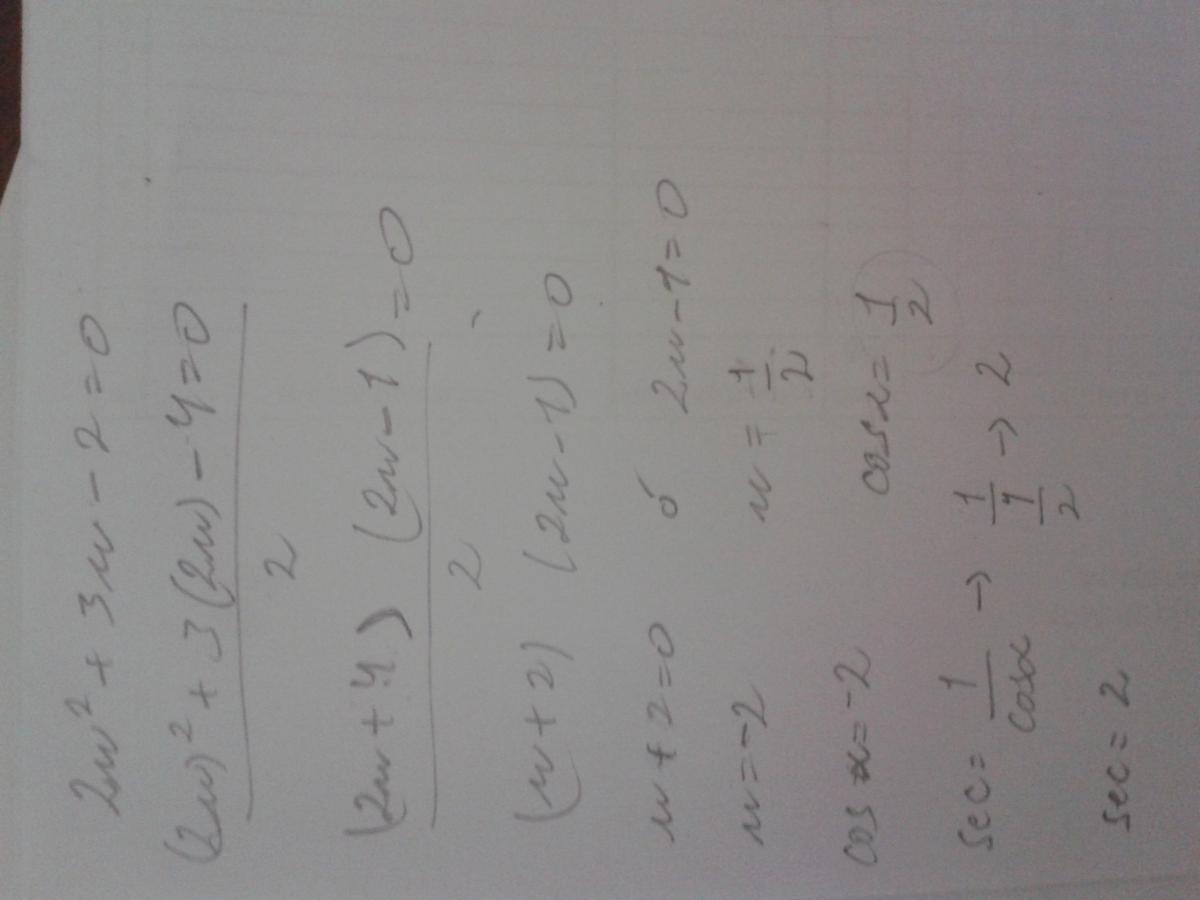 2u² + 3u - 2 = 0
(2u)² + 3(2u) - 4 = 0
2
(2u + 4) (2u - 1) = 0
2
(u + 2) (2u - 1) = 0
u + 2 = 0 ó 2u - 1 = 0
u = -2 u = 1/2
cos x = -2 cos x = 1/2
sec = 1/cos x → 1/(1/2) → 2
sec = 2